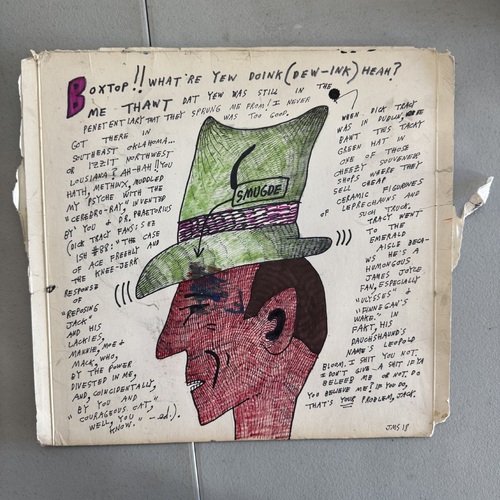 BOXTOP!! WHAT'RE YEW DOINK (DEW-INK) HEAH?
ME THAWT DAT YEW WAS STILL IN THE
PENETENTIARY THAT THEY SPRUNG ME FROM! I NEVER
GOT THERE IN WAS TOO GOOD.
SOUTHEAST OKLAHOMA...
OR IZZIT NORTHWEST
LOUSIANA? AH-HAH! YOU
HATH, METHINX, MODDLED
MY PSYCHE WITH THE
"CEREBRO-RAY," INVENTED
BY YOU & DR. PRAETORIUS
(DICK TRACY FANS: SEE
ISH #88: "THE CASE
OF ACE FREEBLY AND
THE KNEE-JERK
RESPONSE
OF
"REPOSING
JACK"
AND HIS
LACKIES,
MANNIE, MOE &
MACK, WHO,
BY THE POWER
DIVESTED IN ME,
AND, COINCIDENTALLY,
BY YOU AND
"COURAGEOUS CAT,"
WELL, YOU
KNOW." —ed.).
SMUGDE
WHEN DICK TRACY
WAS IN DUBLIN, HE
BAWT THIS TACKY
GREEN HAT IN
ONE OF THOSE
CHEEZY SOUVENEER
SHOPS WHERE THEY
SELL CHEAP
CERAMIC FIGURINES
OF LEPRECHAUNS AND
SUCH TRUCK.
TRACY WENT
TO THE
EMERALD
AISLE BECA-
WS HE'S A
HUMONGOUS
JAMES JOYCE
FAN, ESPECIALLY
"ULYSSES" &
"FINNEGAN'S
WAKE." IN
FAKT, HIS
DAUGHSHAUND'S
NAME'S LEOPOLD
BLOOM. I SHIT YOU NOT.
I DON'T GIVE A SHIT IF YA
BELIEEB ME OR NOT. DO
YOU BELIEVE ME? IF YOU DO,
THAT'S YOUR PROBLEM, JACK.
JMS 18